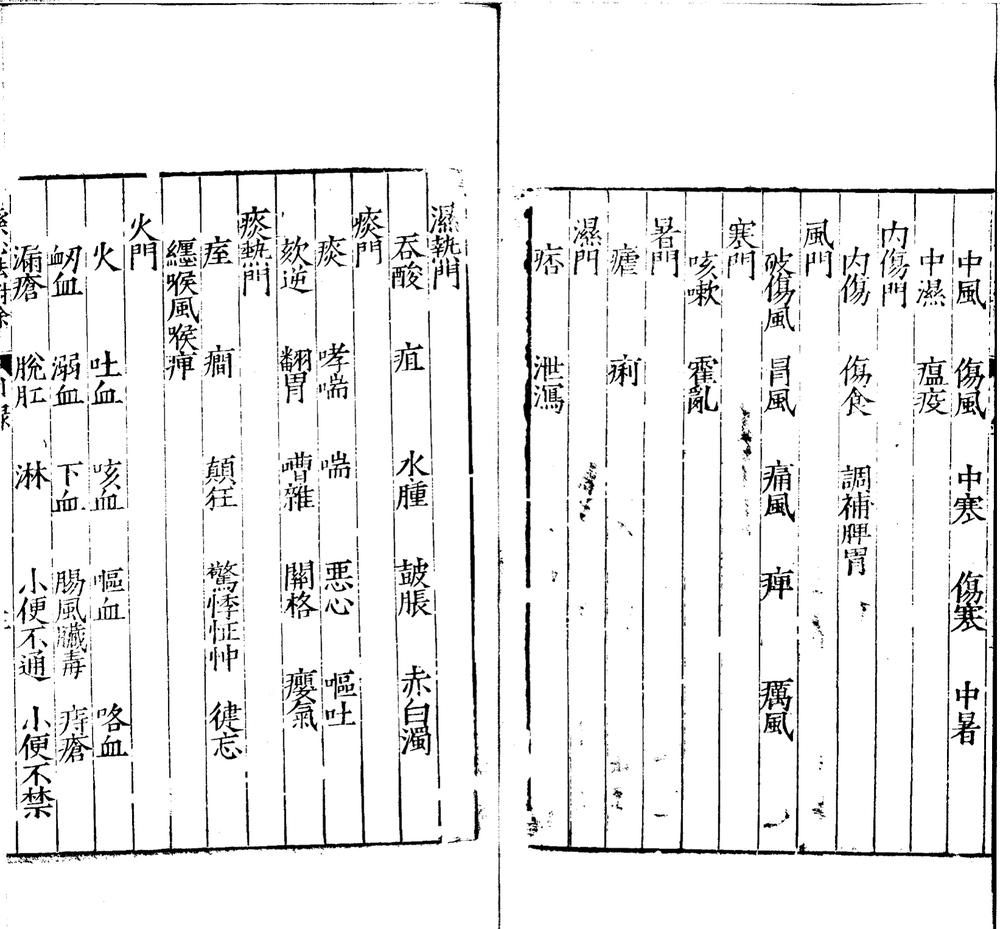 中風 傷風 中寒 傷寒 中暑
中濕 瘟疫
內傷門
內傷 傷食 調補脾胃
風門
破傷風 冒風 痛風 痺 癘風
寒門
咳嗽 霍亂
暑門
瘧 痢
濕門
痞 泄瀉
濕熱門
吞酸 疸 水腫 鼓脹 赤白濁
痰門
痰 哮喘 喘 惡心 嘔吐
欬逆 翻胃 嘈雜 關格 癭氣
瘀熱門
痓 癎 顛狂 驚悸怔忡 健忘
纏喉風喉痺
火門
火 吐血 咳血 嘔血 咯血
衂血 溺血 下血 腸風臟毒 痔瘡
漏瘡 脫肛 淋 小便不通 小便不禁